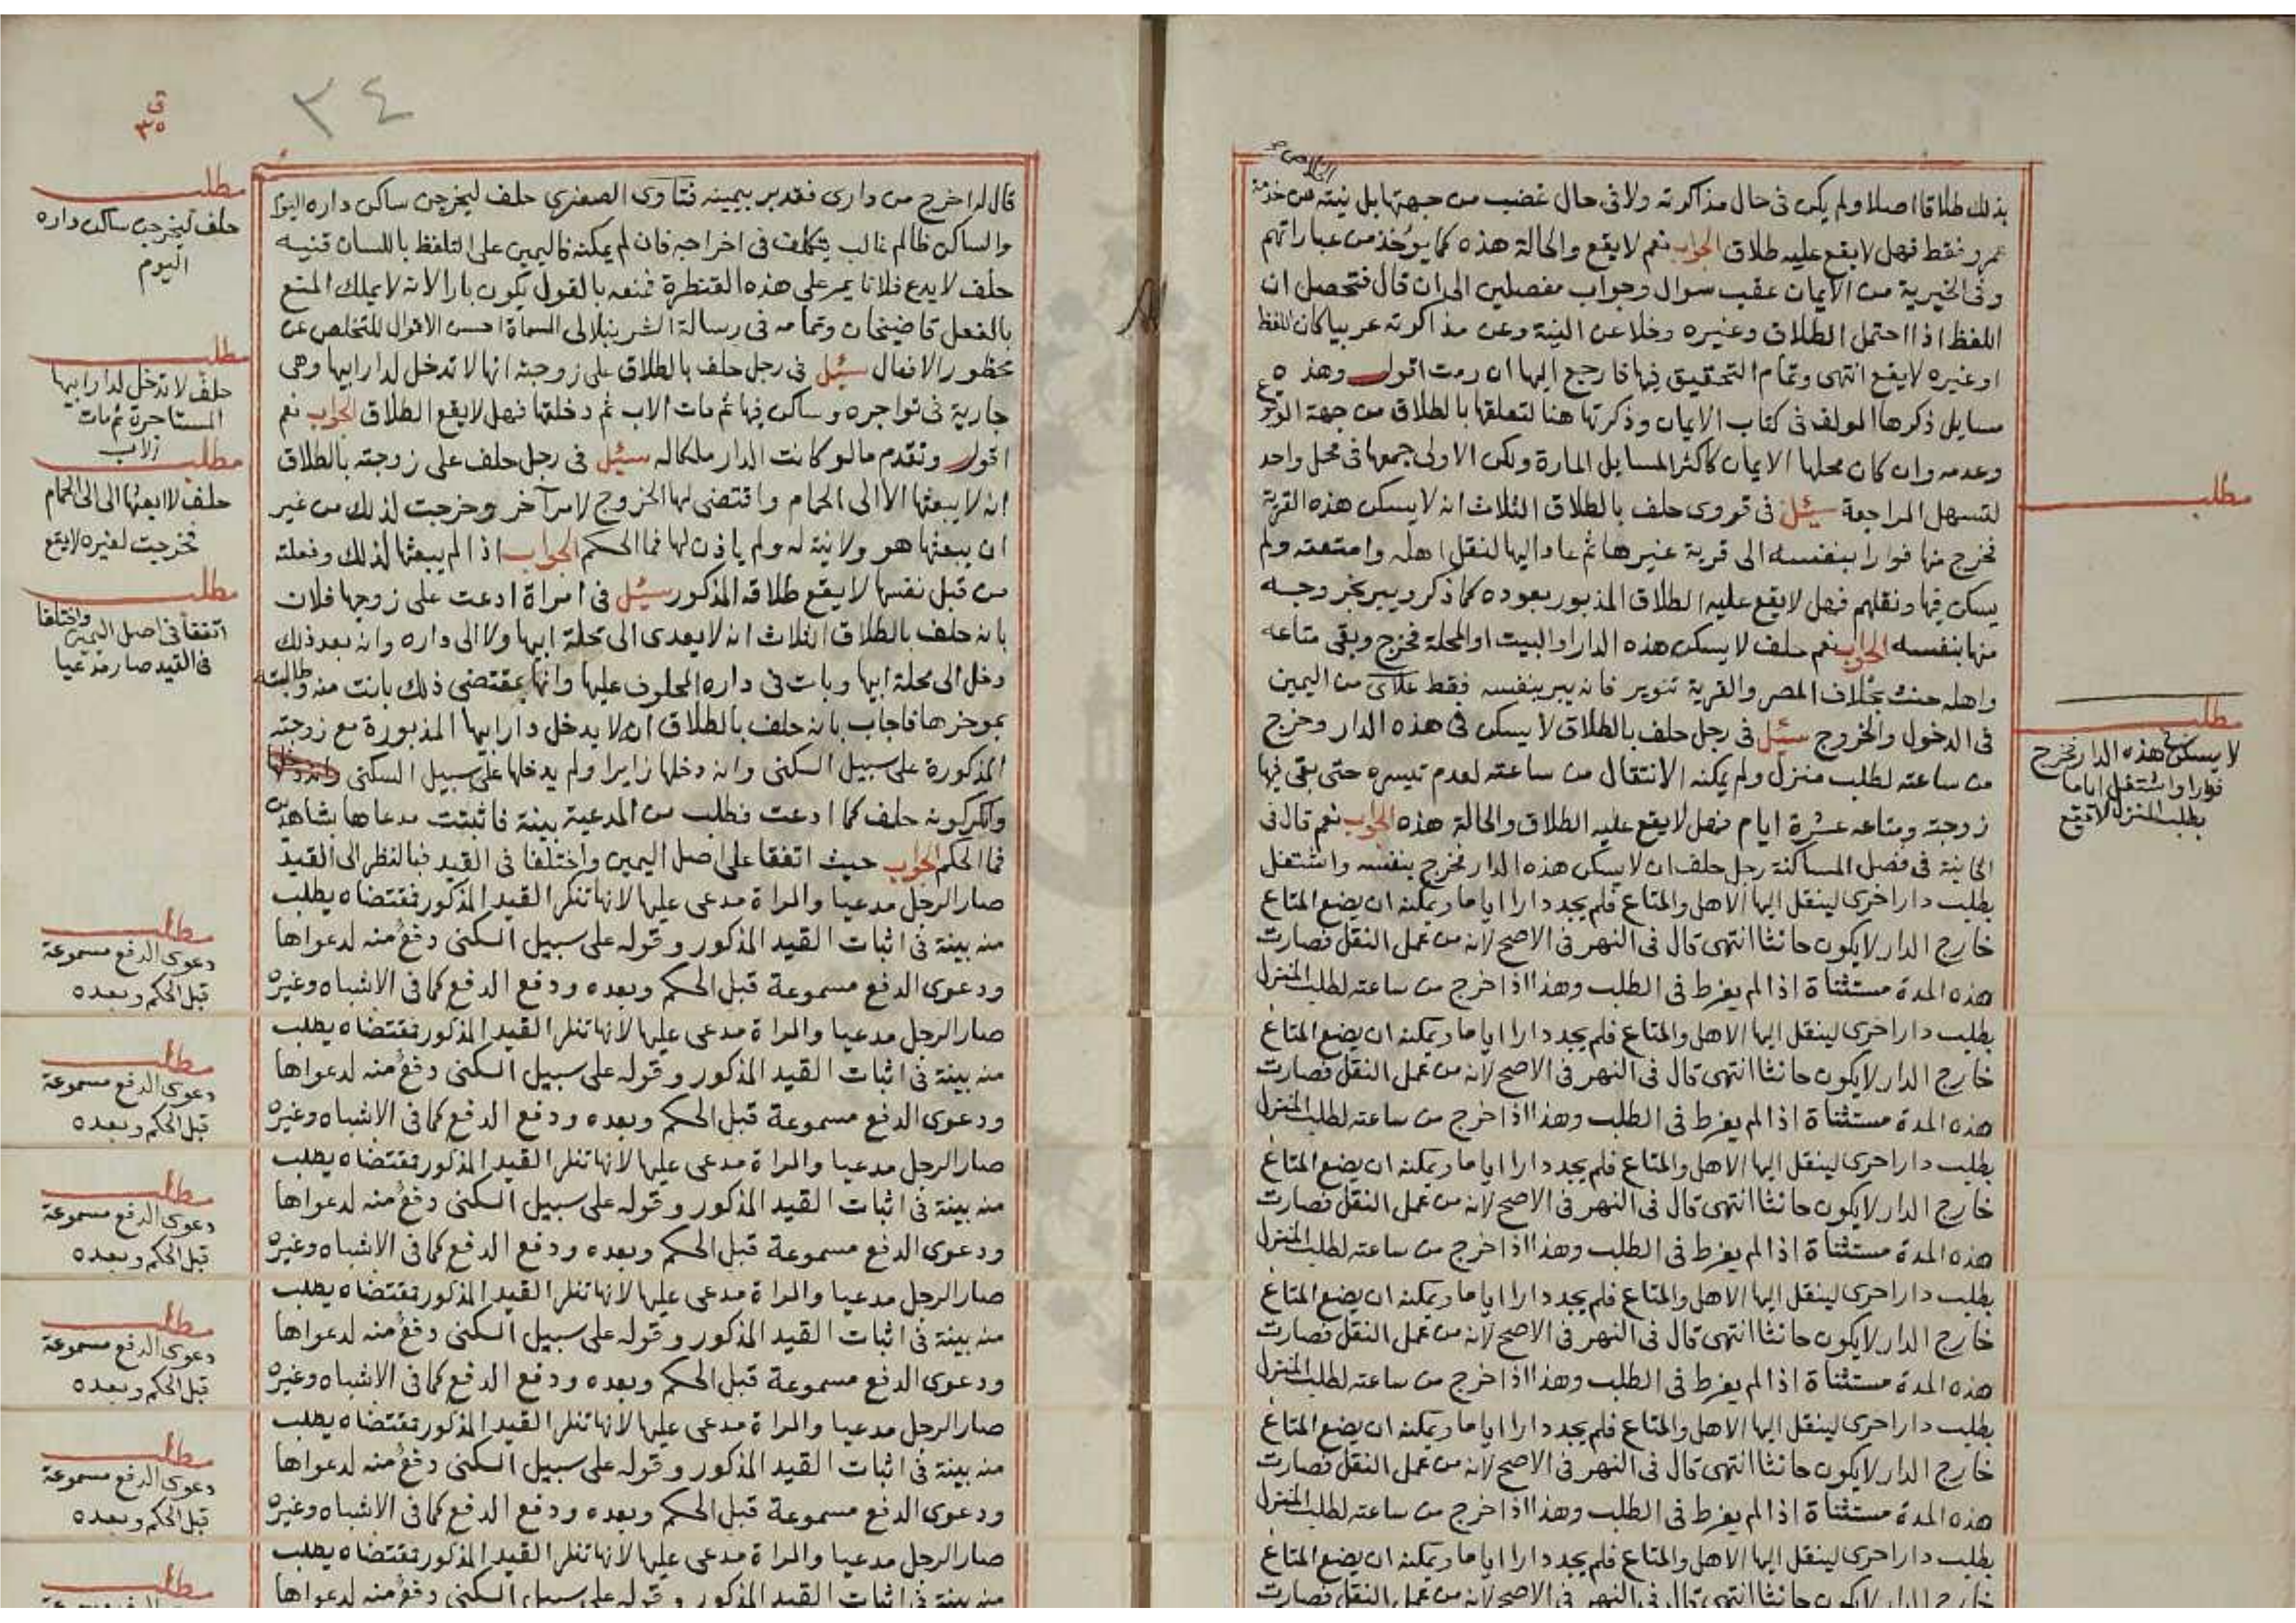 بذلك طلاقا اصلا ولم يكن فى حال مذاكرته ولا فى حال غضب من جهتها بل نيته من خدمة
عمرو فقط فهل لا يقع عليه طلاق الجواب نعم لا يقع والحالة هذه كما يؤخذ من عباراتهم
وفى الخيرية من الايمان عقب سوال وجواب مفصلين الى ان قال فتحصل ان
اللفظ اذا احتمل الطلاق وغيره وخلا عن النية وعن مذاكرته عربيا كان اللفظ
او غيره لا يقع انتهى وتمام التحقيق فيها فارجع اليها ان رمت اقول وهذه
مسايل ذكرها المولف فى كتاب الايمان وذكرتها هنا لتعلقها بالطلاق من جهة الوقوع
وعدمه وان كان محلها الايمان كاكثر المسايل المارة ولكن الاولى جمعها فى محل واحد
لتسهل المراجعة سئل فى قروى حلف بالطلاق الثلاث انه لا يسكن هذه القرية
فخرج منها فورا بنفسه الى قرية غيرها ثم عاد اليها لنقل اهله وامتعته ولم
يسكن فيها ونقلهم فهل لا يقع عليه الطلاق المذبور بعوده كما ذكر ويبر بخروجه
منها بنفسه الجواب نعم حلف لا يسكن هذه الدار او البيت او المحلة فخرج وبقى متاعه
واهله حنث بخلاف المصر والقرية تنوير فانه يبر بنفسه فقط علائى من اليمين
فى الدخول والخروج سئل فى رجل حلف بالطلاق لا يسكن فى هذه الدار وخرج
من ساعته لطلب منزل ولم يمكنه الانتقال من ساعته لعدم تيسره حتى بقى فيها
زوجته ومتاعه عشرة ايام فهل لا يقع عليه الطلاق والحالة هذه الجواب نعم قال فى
الخانية فى فصل المساكنة رجل حلف ان لا يسكن هذه الدار فخرج بنفسه واشتغل
بطلب دار اخرى لينقل اليها الاهل والمتاع فلم يجد دارا اياما ويمكنه ان يضع المتاع
خارج الدار لا يكون حانثا انتهى قال فى النهر فى الاصح لانه من عمل النقل فصارت
هذه المدة مستثناة اذا لم يفرط فى الطلب وهذا اذا خرج من ساعته لطلب المنزل
بطلب دار اخرى لينقل اليها الاهل والمتاع فلم يجد دارا اياما ويمكنه ان يضع المتاع
خارج الدار لا يكون حانثا انتهى قال فى النهر فى الاصح لانه من عمل النقل فصارت
هذه المدة مستثناة اذا لم يفرط فى الطلب وهذا اذا خرج من ساعته لطلب المنزل
بطلب دار اخرى لينقل اليها الاهل والمتاع فلم يجد دارا اياما ويمكنه ان يضع المتاع
خارج الدار لا يكون حانثا انتهى قال فى النهر فى الاصح لانه من عمل النقل فصارت
هذه المدة مستثناة اذا لم يفرط فى الطلب وهذا اذا خرج من ساعته لطلب المنزل
بطلب دار اخرى لينقل اليها الاهل والمتاع فلم يجد دارا اياما ويمكنه ان يضع المتاع
خارج الدار لا يكون حانثا انتهى قال فى النهر فى الاصح لانه من عمل النقل فصارت
هذه المدة مستثناة اذا لم يفرط فى الطلب وهذا اذا خرج من ساعته لطلب المنزل
بطلب دار اخرى لينقل اليها الاهل والمتاع فلم يجد دارا اياما ويمكنه ان يضع المتاع
خارج الدار لا يكون حانثا انتهى قال فى النهر فى الاصح لانه من عمل النقل فصارت
هذه المدة مستثناة اذا لم يفرط فى الطلب وهذا اذا خرج من ساعته لطلب المنزل
بطلب دار اخرى لينقل اليها الاهل والمتاع فلم يجد دارا اياما ويمكنه ان يضع المتاع
خارج الدار لا يكون حانثا انتهى قال فى النهر فى الاصح لانه من عمل النقل فصارت
مطلب
مطلب
لا يسكن فى هذه الدار فخرج
فورا واشتغل اياما
بطلب المنزل لا يقع
٣٤
ق
٣٥
قال له اخرج من دارى فقد بر بيمينه فتاوى الصغرى حلف ليخرجن ساكن داره اليوم
والساكن ظالم غالب يتكلف فى اخراجه فان لم يمكنه فاليمين على التلفظ باللسان قنيه
حلف لا يدع فلانا يمر على هذه القنطرة فمنعه بالقول يكون بارا لانه لا يملك المنع
بالفعل قاضيخان وتمامه فى رسالة الشرنبلالى المسماة احسن الاقوال للتخلص عن
محظور الافعال سئل فى رجل حلف بالطلاق على زوجته انها لا تدخل لدار ابيها وهى
جارية فى تواجره وساكن فيها ثم مات الاب ثم دخلتها فهل لا يقع الطلاق الجواب نعم
اقول وتقدم ما لو كانت الدار ملكا له سئل فى رجل حلف على زوجته بالطلاق
انه لا يبعثها الا الى الحمام واقتضى لها الخروج لامر آخر وخرجت لذلك من غير
ان يبعثها هو ولا نية له ولم ياذن لها فما الحكم الجواب اذا لم يبعثها لذلك وفعلته
من قبل نفسها لا يقع طلاقه المذكور سئل فى امراة ادعت على زوجها فلان
بانه حلف بالطلاق الثلاث انه لا يعدى الى محلة ابيها ولا الى داره وانه بعد ذلك
دخل الى محلة ابيها وبات فى داره المحلوف عليها وانها بمقتضى ذلك بانت منه وطالبته
بموخرها فاجاب بانه حلف بالطلاق انه لا يدخل دار ابيها المذبورة مع زوجته
المذكورة على سبيل السكنى وانه دخلها زايرا ولم يدخلها على سبيل السكنى
وانكر كونه حلف كما ادعت فطلب من المدعية بينة فاثبتت مدعاها بشاهدين
فما الحكم الجواب حيث اتفقا على اصل اليمين واختلفا فى القيد فبالنظر الى القيد
صار الرجل مدعيا والمراة مدعى عليها لانها تنكر القيد المذكور فمقتضاه يطلب
منه بينة فى اثبات القيد المذكور وقوله على سبيل السكنى دفع منه لدعواها
ودعوى الدفع مسموعة قبل الحكم وبعده ودفع الدفع كما فى الاشباه وغيره
صار الرجل مدعيا والمراة مدعى عليها لانها تنكر القيد المذكور فمقتضاه يطلب
منه بينة فى اثبات القيد المذكور وقوله على سبيل السكنى دفع منه لدعواها
ودعوى الدفع مسموعة قبل الحكم وبعده ودفع الدفع كما فى الاشباه وغيره
صار الرجل مدعيا والمراة مدعى عليها لانها تنكر القيد المذكور فمقتضاه يطلب
منه بينة فى اثبات القيد المذكور وقوله على سبيل السكنى دفع منه لدعواها
ودعوى الدفع مسموعة قبل الحكم وبعده ودفع الدفع كما فى الاشباه وغيره
صار الرجل مدعيا والمراة مدعى عليها لانها تنكر القيد المذكور فمقتضاه يطلب
منه بينة فى اثبات القيد المذكور وقوله على سبيل السكنى دفع منه لدعواها
ودعوى الدفع مسموعة قبل الحكم وبعده ودفع الدفع كما فى الاشباه وغيره
صار الرجل مدعيا والمراة مدعى عليها لانها تنكر القيد المذكور فمقتضاه يطلب
منه بينة فى اثبات القيد المذكور وقوله على سبيل السكنى دفع منه لدعواها
ودعوى الدفع مسموعة قبل الحكم وبعده ودفع الدفع كما فى الاشباه وغيره
صار الرجل مدعيا والمراة مدعى عليها لانها تنكر القيد المذكور فمقتضاه يطلب
منه بينة فى اثبات القيد المذكور وقوله على سبيل السكنى دفع منه لدعواها
مطلب
حلف ليخرجن ساكن داره
اليوم
مطلب
حلف لا تدخل لدار ابيها
المستاجرة ثم مات
الاب
مطلب
حلف لا ابعثها الى الى الحمام
فخرجت لغيره لا يقع
مطلب
اتفقا فى اصل اليمين واختلفا
فى القيد صار مدعيا
مطلب
دعوى الدفع مسموعة
قبل الحكم وبعده
مطلب
دعوى الدفع مسموعة
قبل الحكم وبعده
مطلب
دعوى الدفع مسموعة
قبل الحكم وبعده
مطلب
دعوى الدفع مسموعة
قبل الحكم وبعده
مطلب
دعوى الدفع مسموعة
قبل الحكم وبعده
مطلب